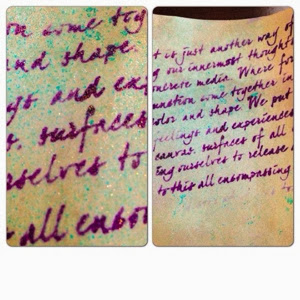 on come tog
nd shape.
gs and exp
s. surfaces
rselves to
all encom
t is just another way of
g our innermost thought
ncrete media. Where fo
unction come together in
olor and shape. We put
feelings and experiences
canvas. surfaces of all
ing ourselves to release
to this all encompassing